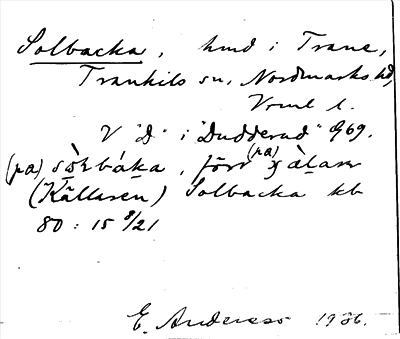 Solbacka, hmd i Trane,
Trankils sn, Nordmarks hd,
Vrml l.
V "D" i "Dudderud" g69.
(pa) sòlbáka, förr (pa) xàlaṣr
(Källaren) Solbacka kb
80 : 15 8/21
E. Anderson 1936.